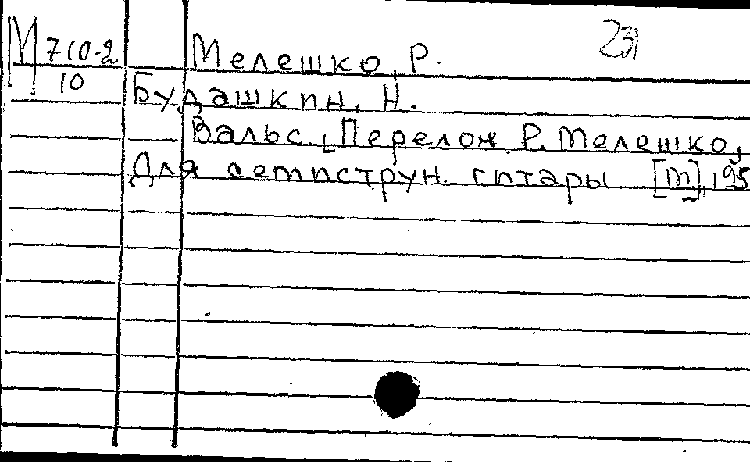 М 710-2 Мелешко, Р. 231
10 Будашкин, Н.
Вальс. [Перелож. Р. Мелешко,
Для семиструн. гитары [m],195